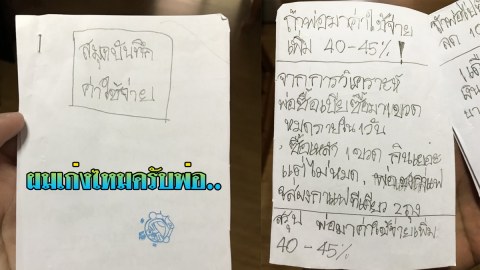 สมุดบันทึก
ค่าใช้จ่าย
ผมเก่งไหมครับพ่อ..
ถ้าพ่อมาค่าใช้จ่าย
เพิ่ม 40-45%!
จากการวิเคราะห์
พ่อซื้อเบียซื้อมา 1 ขวด
หมดภายใน 1 วัน
ซื้อเหล้า 1 ขวด กินเยอะ
แต่ไม่หมด, พ่อ
ใส่ผงกาแฟทีเดียว 2 ถุง
สรุป พ่อมาค่าใช้จ่ายเพิ่ม
40-45%
ลด